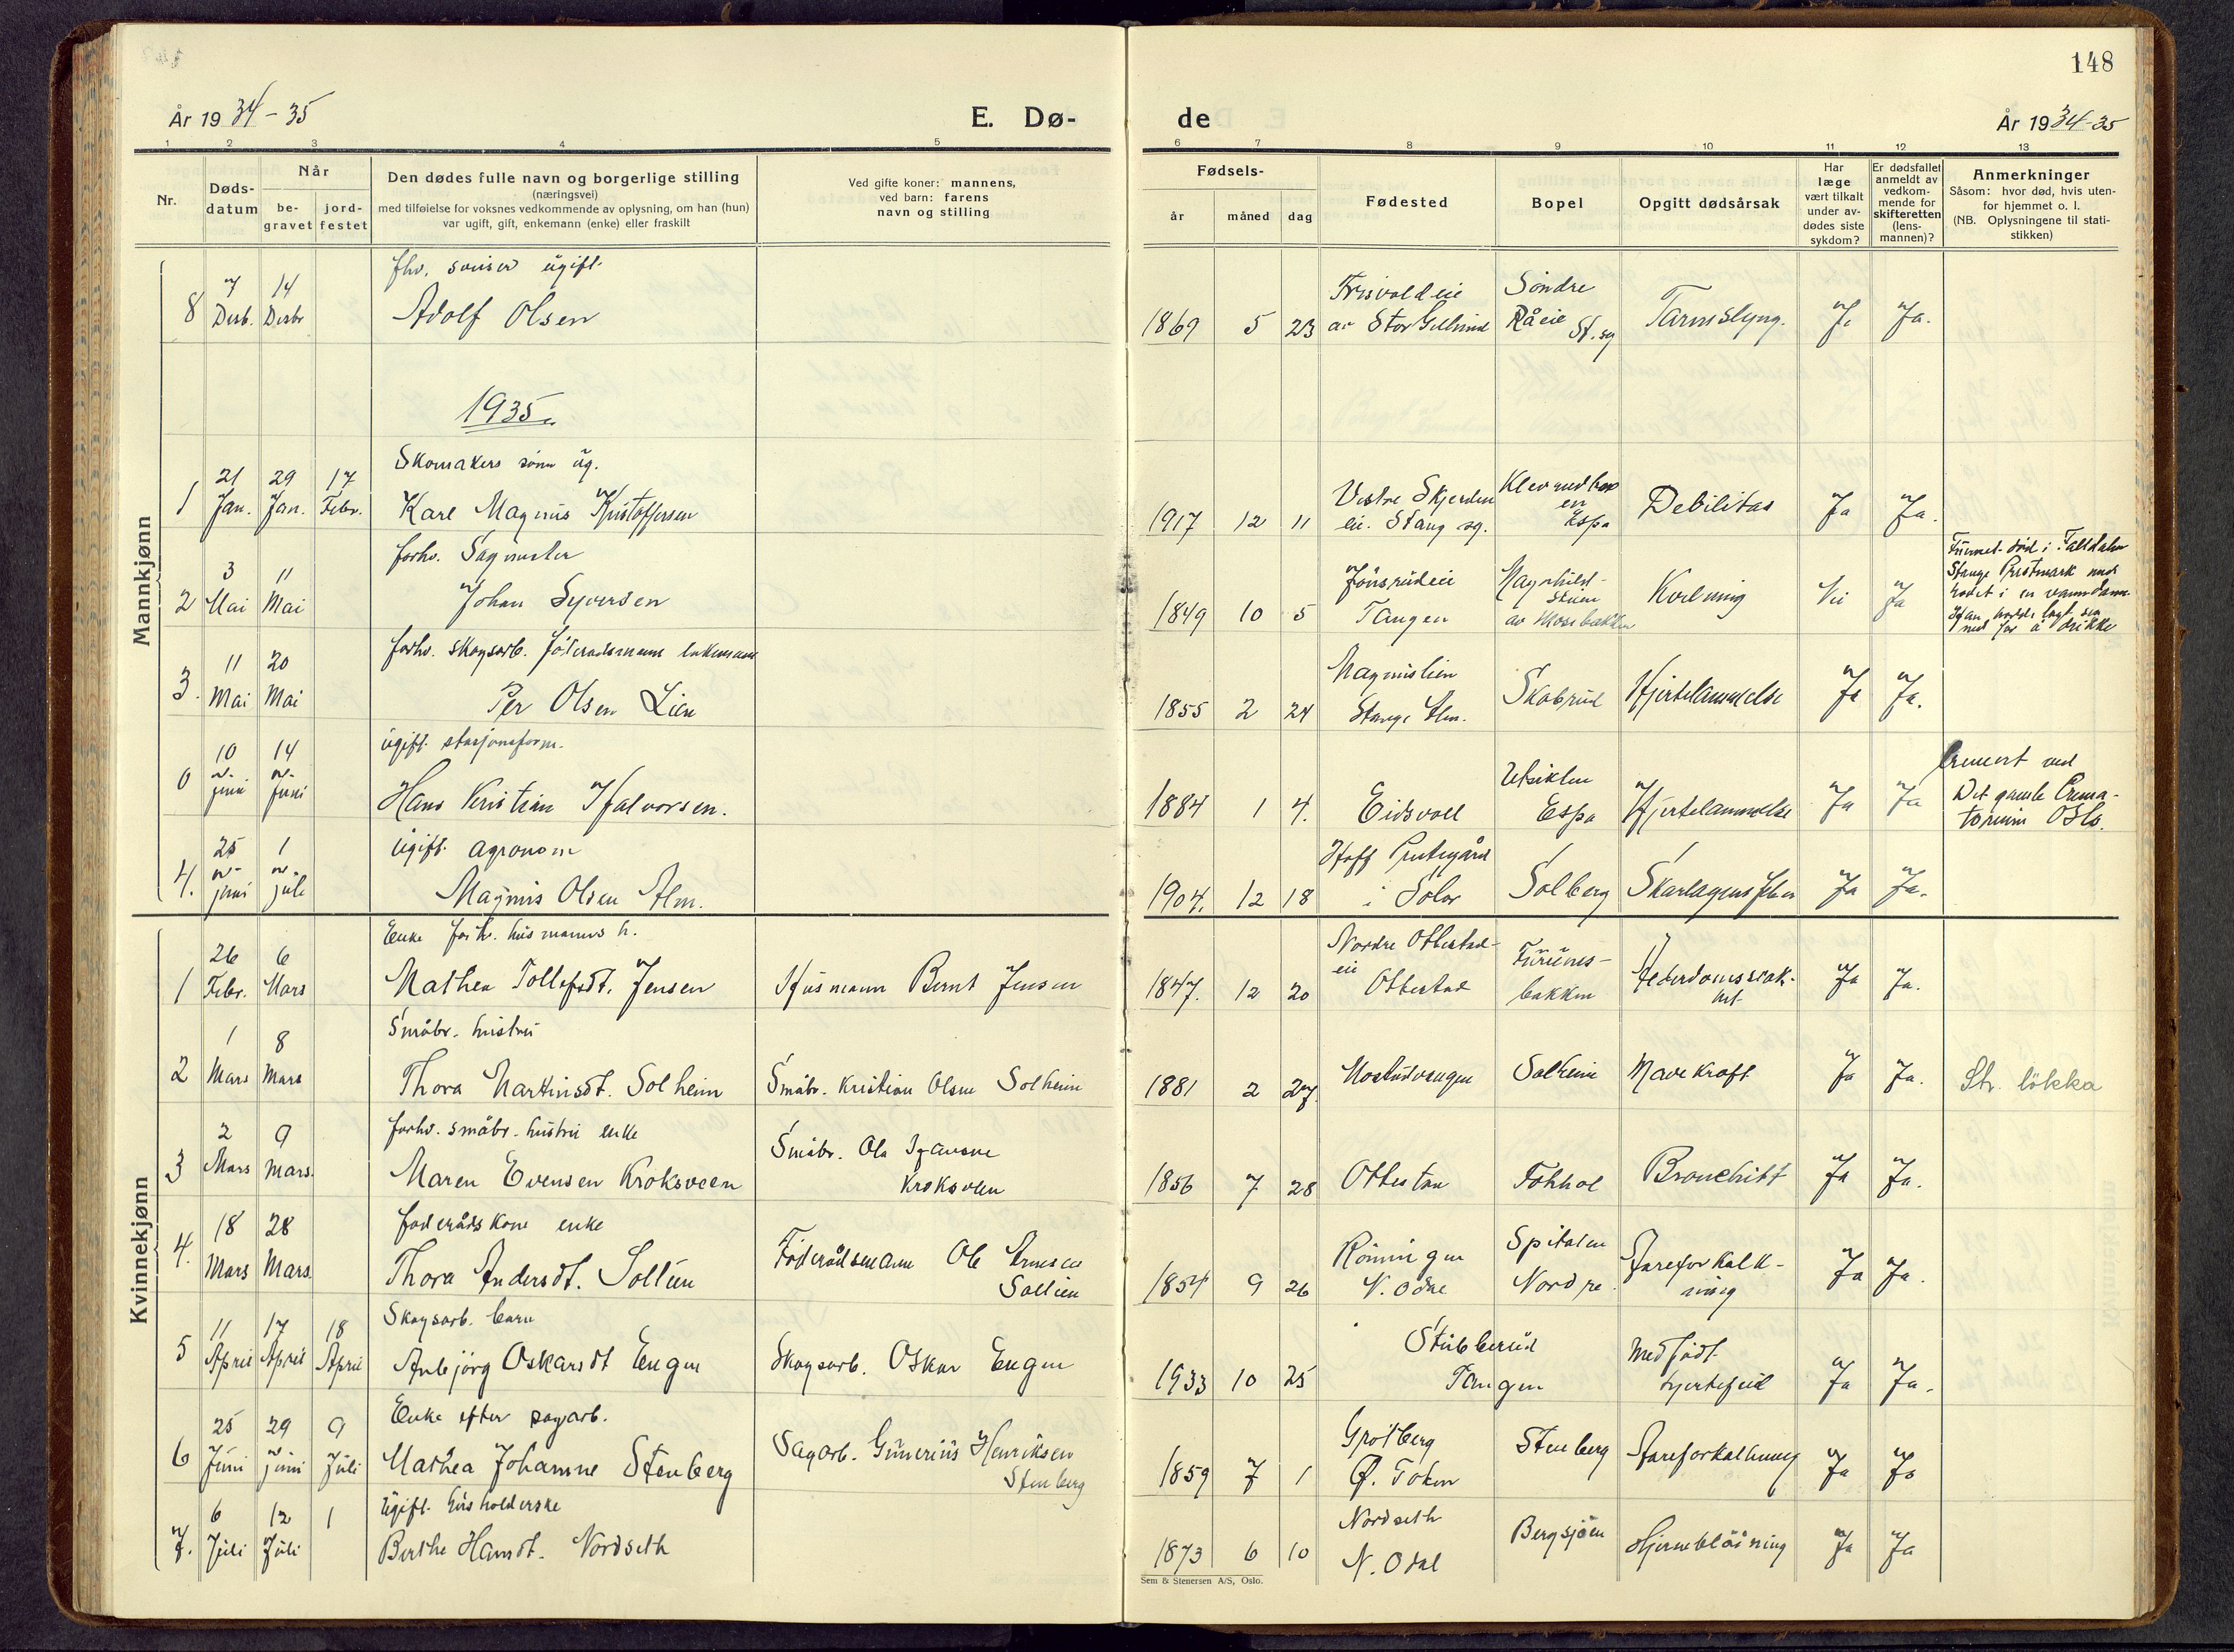 148
År 1934-35
E. Dø-
de
År 1934-35
1 2 3 4 5 6 7 8 9 10 11 12 13
Nr.
Døds-
datum
Når
be-
gravet
jord-
festet
Den dødes fulle navn og borgerlige stilling
(næringsvei)
med tilføielse for voksnes vedkommende av oplysning, om han (hun)
var ugift, gift, enkemann (enke) eller fraskilt
Ved gifte koner: mannens,
ved barn: farens
navn og stilling
Fødsels-
år måned dag
Fødested
Bopel
Opgitt dødsårsak
Har
læge
vært tilkalt
under av-
dødes siste
sykdom?
Er dødsfallet
anmeldt av
vedkom-
mende for
skifteretten
(lens-
mannen)?
Anmerkninger
Såsom: hvor død, hvis uten-
for hjemmet o. l.
(NB. Oplysningene til stati-
stikken)
Mannkjønn
fhv. ugift
8 7 Desb. 14 Desbr Adolf Olsen 1869 5 23 Frisvoldeie av Stor Søndre Råeie St. sg Tarmslyng. Ja Ja.
1935.
Skomakers sønn ug.
1 21 Jan. 29 Jan. 17 Febr. Karl Magnus Kristoffersen 1917 12 11 Vestre Skjerden eie. Stang sg. Espa Debilitas Ja Ja.
forhv. Sagmester
2 3 Mai 11 Mai Johan Syversen 1849 10 5 Jønsrudeie Tangen av Mosebakken Kvelning Nei Ja
Funnet død i
Stange Prestmark med
hodet i en vanndam
Han hadde lagt sig
ned for å drikke
forhv. skogsarb. føderådsmann enkemann
3. 11 Mai 20 Mai Per Olsen Lien 1855 2 24 Magnuslien Stange Alm. Skabrud Hjertelammelse Ja Ja.
ugift stasjonsform.
0 10 juni 14 juni Hans Kristian Halvorsen. 1884 1 4. Eidsvoll Utsikten Espa Hjertelammelse Ja Ja
Cremert ved
Det gamle Crema-
torium Oslo.
ugift agronom
4. 25 juni 1 juli Magnus Olsen Alm. 1904. 12 18 Hoff Prestegård i Solør Solberg Skarlagensfeber Ja Ja.
Kvinnekjønn
Enke forh. husmanns h.
1 26 Febr. 6 Mars Mathea Tollefsdt. Jensen Husmann Bernt Jensen 1847. 12 20 Nordre Ottestad- eie Ottestad Furunes- bakken Alderdomssvak- het Ja Ja.
Småbr. hustru
2 1 Mars 8 Mars Thora Martinsdt. Solheim Småbr. Kristian Olsen Solheim 1881 2 27 Solheim Mavekræft Ja Ja. Str. løkka
forhv. småbr. hustru enke
3 2 Mars 9 mars. Maren Evensen Kroksveen Småbr. Ola Kroksveen 1856 7 28 Ottestad Bronchitt Ja Ja.
føderådskone enke
4. 18 Mars 28 Mars. Thora Andersdt. Sollien Føderådsmann Ole Arnesen Sollien 1854 9 26 Rønningen N. Odal Spitalen Nordre Åreforkalk- ning Ja Ja.
Skogsarb. barn
5 11 April 17 April 18 April Anbjørg Oskarsdt Engen Skogsarb. Oskar Engen 1933 10 25 Stubberud Tangen Medfødt hjertefeil Ja Ja.
Enke efter sagarb.
6 25 Juni 29 juni 9 Juli Mathea Johanne Stenberg Sagarb. Gunerius Henriksen Stenberg 1859 7 1 Grøtberg Ø. Toten Stenberg Åreforkalkning Ja Ja
Ugift husholderske
7. 6 Juli 12 Juli 1 Berthe Hansdt. Nordseth 1873 6 10 Nordseth N. Odal Bergsjøen Hjerneblødning Ja Ja
Sem & Stenersen A/S, Oslo.